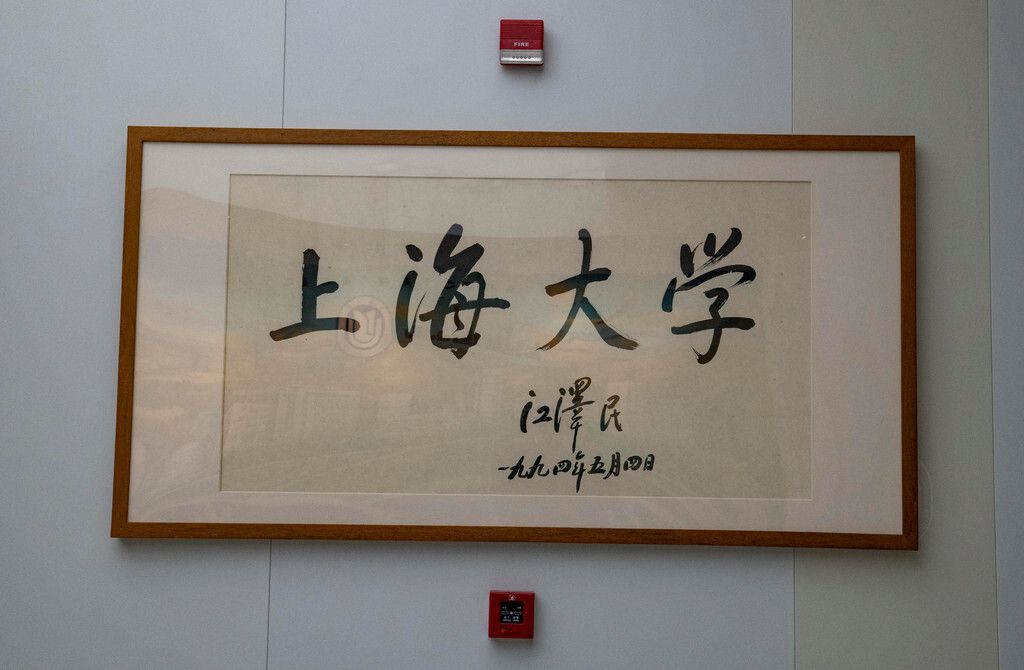 FIRE
上海大学
江澤民
一九九四年五月四日